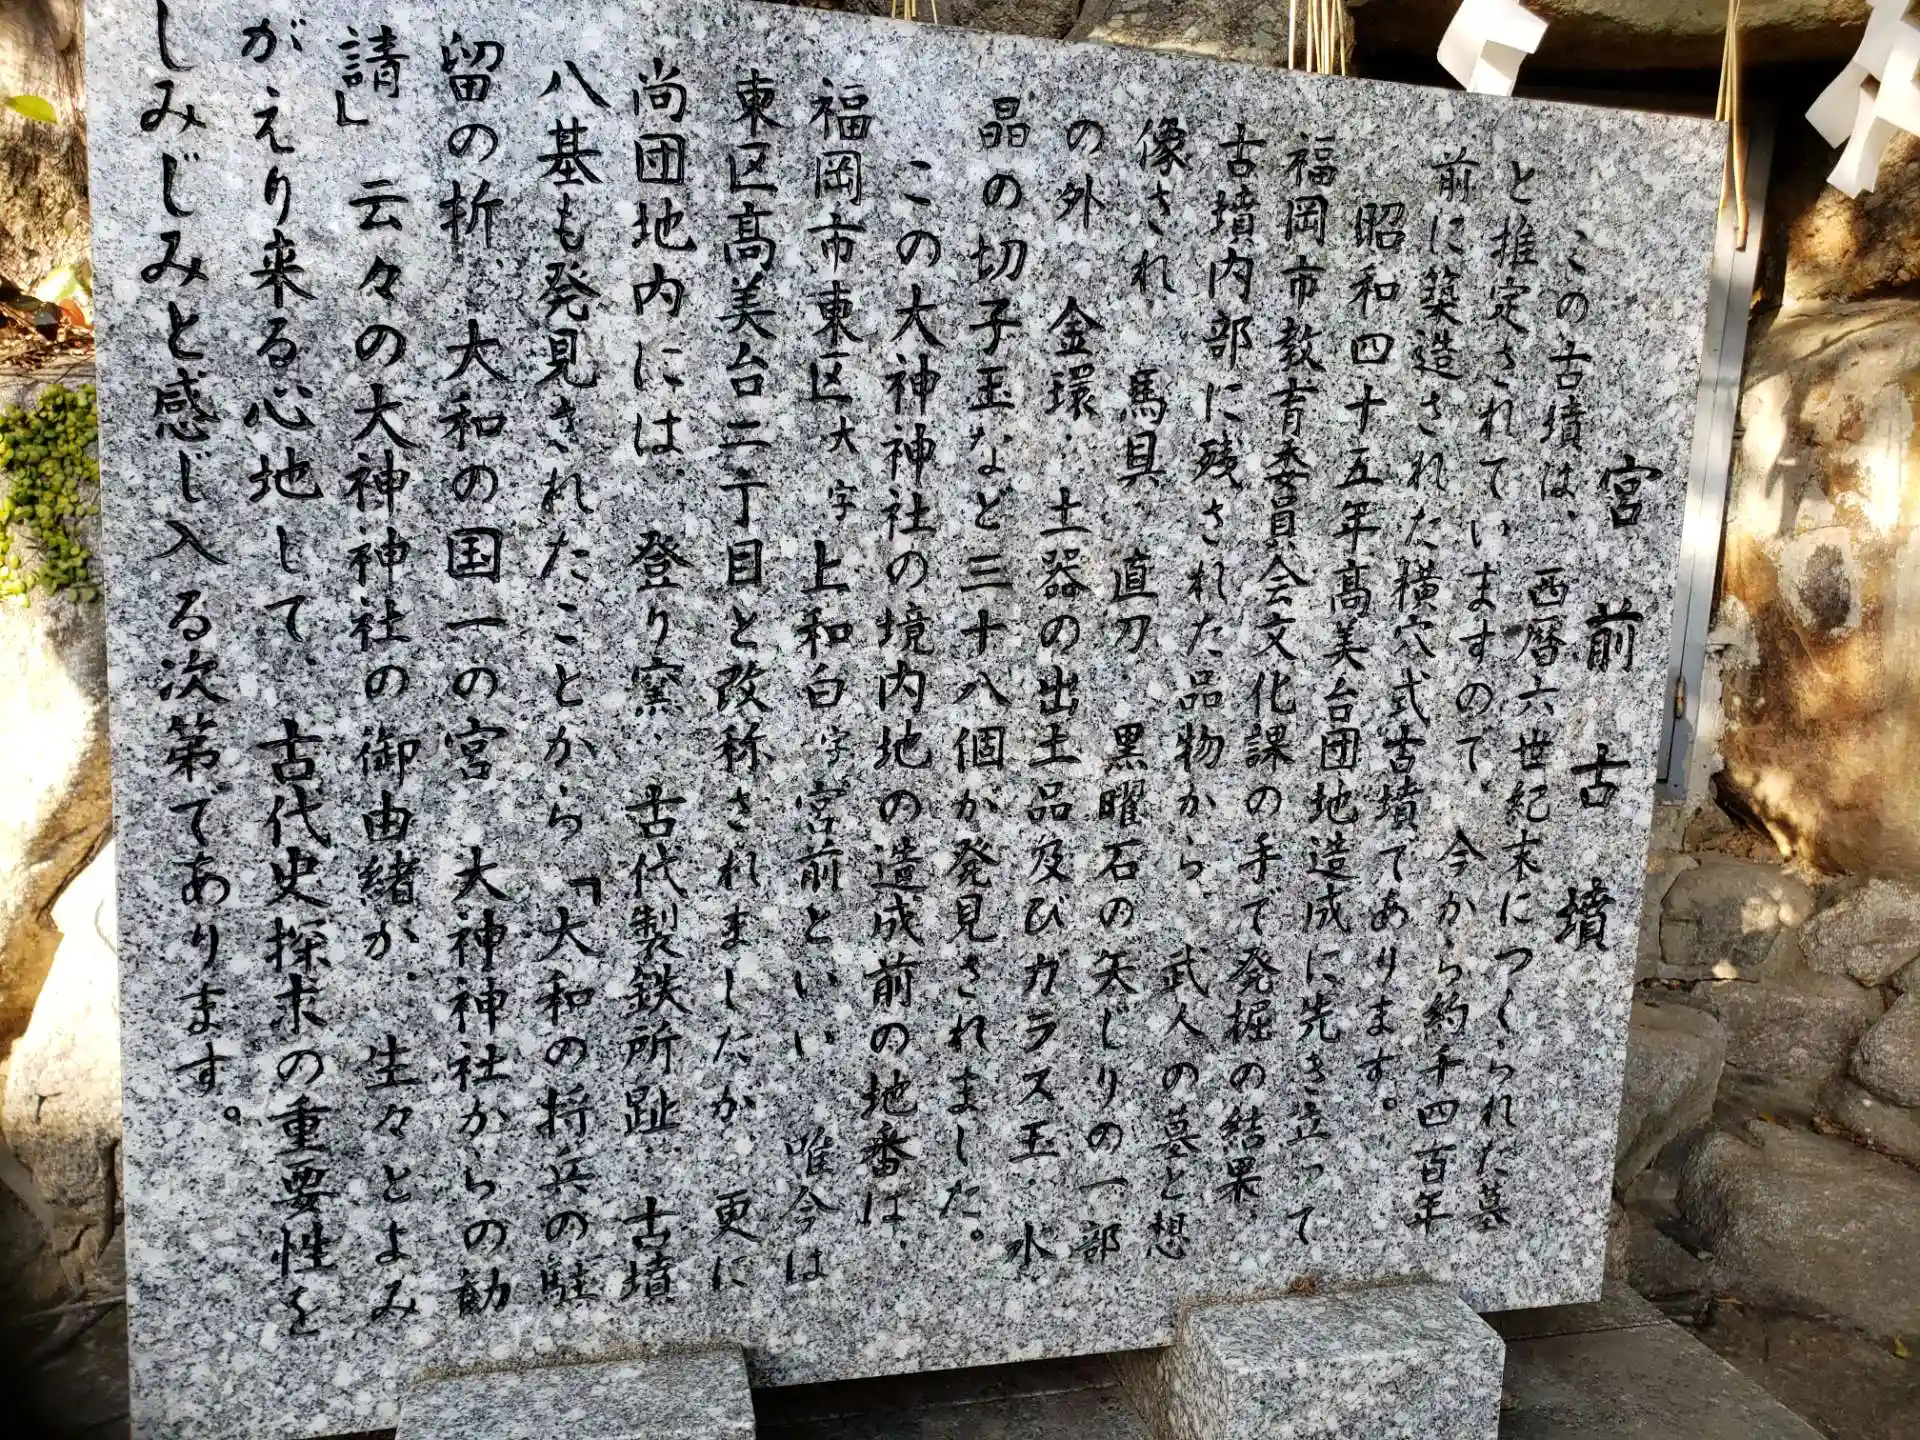 宮前古墳
この古墳は、西暦六世紀末につくられた墓
と推定されていますので、今から約千四百年
前に築造された横穴式古墳であります。
昭和四十五年高美台団地造成に先き立って
福岡市教育委員会文化課の手で発掘の結果、
古墳内部に残された品物から、武人の墓と想
像され、馬具、直刀、黒曜石の矢じりの一部
の外、金環、土器の出土品及びガラス玉、水
晶の切子玉など三十八個が発見されました。
この大神神社の境内地の造成前の地番は、
福岡市東区大字上和白字宮前といい、唯今は
東区高美台二丁目と改称されましたが、更に
尚団地内には、登り窯、古代製鉄所趾、古墳
八基も発見されたことから「大和の将兵の駐
留の折、大和の国一の宮、大神神社からの勧
請」云々の大神神社の御由緒が、生々とよみ
がえり来る心地して、古代史探求の重要性を
しみじみと感じ入る次第であります。